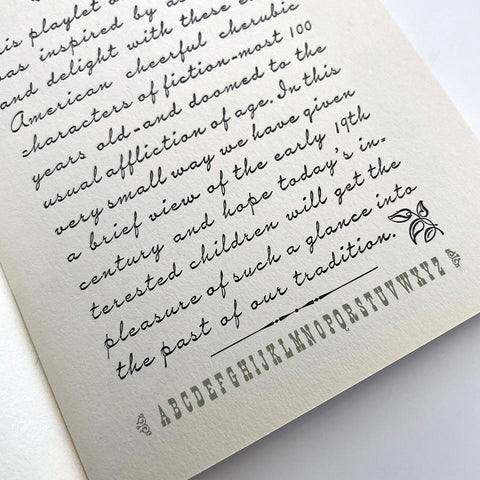 is playlet
was inspired by
and delight with these
American cheerful cherubic
characters of fiction-most 100
years old-and doomed to the
usual affliction of age. In this
very small way we have given
a brief view of the early 19th
century and hope today's in-
terested children will get the
pleasure of such a glance into
the past of our tradition.
ABCDEFGHIJKLMNOPQRSTUVWXYZ